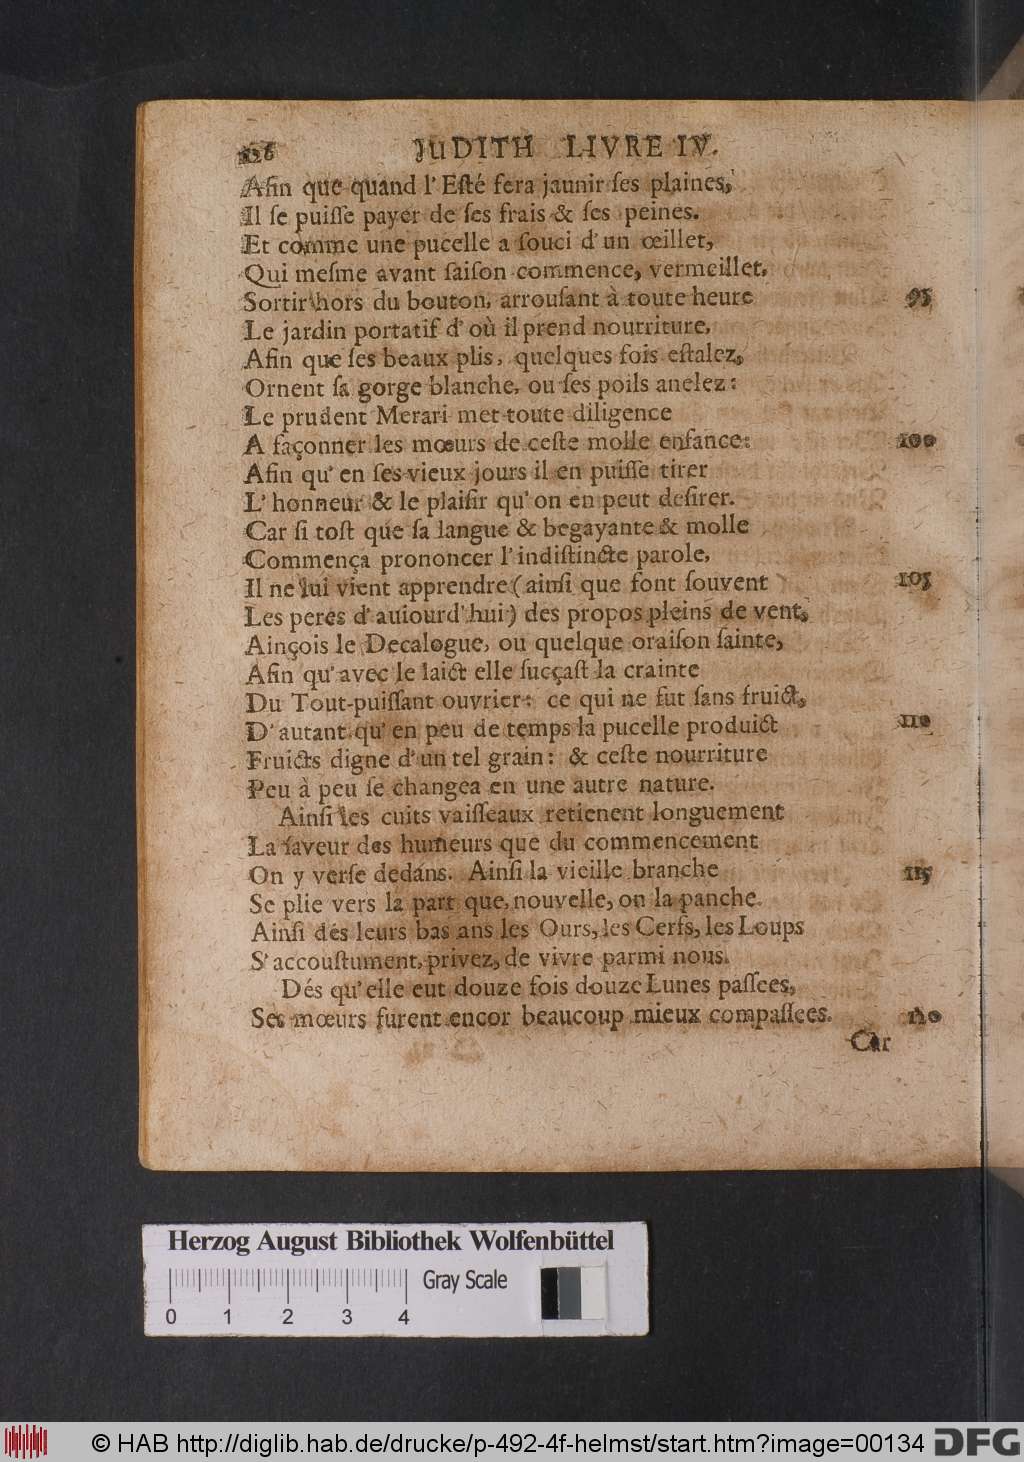 JUDITH LIVRE IV.
Afin que quand l'Eſté fera jaunir ſes plaines,
Il ſe puiſſe payer de ſes frais & ſes peines.
Et comme une pucelle a ſouci d'un œillet,
Qui meſme avant ſaiſon commence, vermeillet,
Sortir hors du bouton, arrouſant à toute heure 95
Le jardin portatif d'où il prend nourriture,
Afin que ſes beaux plis, quelques fois eſtalez,
Ornent ſa gorge blanche, ou ſes poils anelez:
Le prudent Merari met toute diligence
A façonner les mœurs de ceſte molle enfance: 100
Afin qu'en ſes vieux jours il en puiſſe tirer
L'honneur & le plaiſir qu'on en peut deſirer.
Car ſi toſt que ſa langue & begayante & molle
Commença prononcer l'indiſtincte parole,
Il ne lui vient apprendre (ainſi que font ſouvent 105
Les peres d'auiourd'hui) des propos pleins de vent,
Ainçois le Decalogue, ou quelque oraiſon ſainte,
Afin qu'avec le laict elle ſucçaſt la crainte
Du Tout-puiſſant ouvrier: ce qui ne fut ſans fruict,
D'autant qu'en peu de temps la pucelle produict 110
Fruicts digne d'un tel grain: & ceſte nourriture
Peu à peu ſe changea en une autre nature.
Ainſi les cuits vaiſſeaux retienent longuement
La ſaveur des humeurs que du commencement
On y verſe dedans. Ainſi la vieille branche 115
Se plie vers la part que, nouvelle, on la panche.
Ainſi dés leurs bas ans les Ours, les Cerfs, les Loups
S'accouſtument, privez, de vivre parmi nous.
Dés qu'elle eut douze fois douze Lunes paſſees,
Ses mœurs furent encor beaucoup mieux compaſſees. 120
Car
Herzog August Bibliothek Wolfenbüttel
Gray Scale
0 1 2 3 4
© HAB http://diglib.hab.de/drucke/p-492-4f-helmst/start.htm?image=00134 DFG